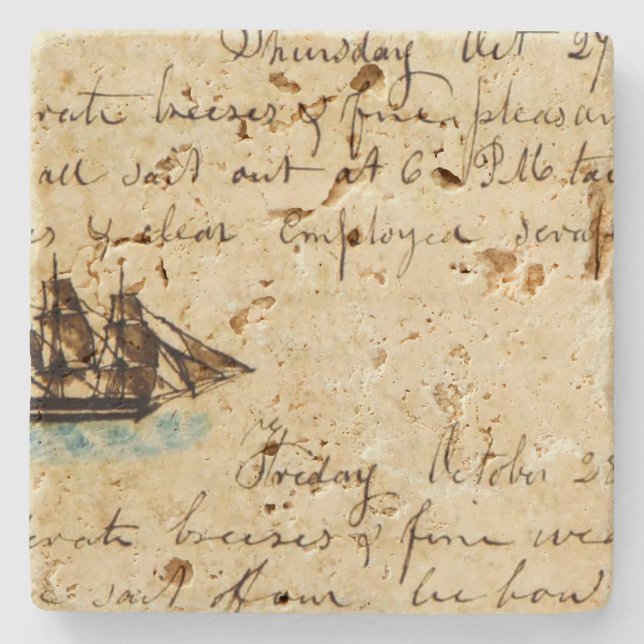 Thursday Oct 27
rate breezes & fine pleasan
all sail out at 6 PM tac
es & clear Employed scrap
Friday October 28
erate breezes & fine wea
sail off our lee bow